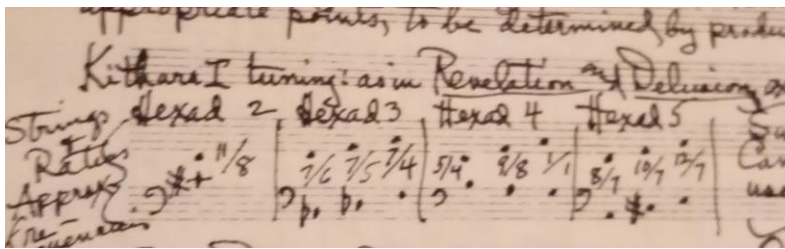 appropriate points, to be determined, by produ
Kithara I tuning: as in Revelation and Delusion,
Strings Hexad 2 Hexad 3 Hexad 4 Hexad 5
Ratios 11/8 7/6 7/5 7/4 5/4 9/8 1/1 8/7 10/7 12/7
Approx.
Fre-
quencies